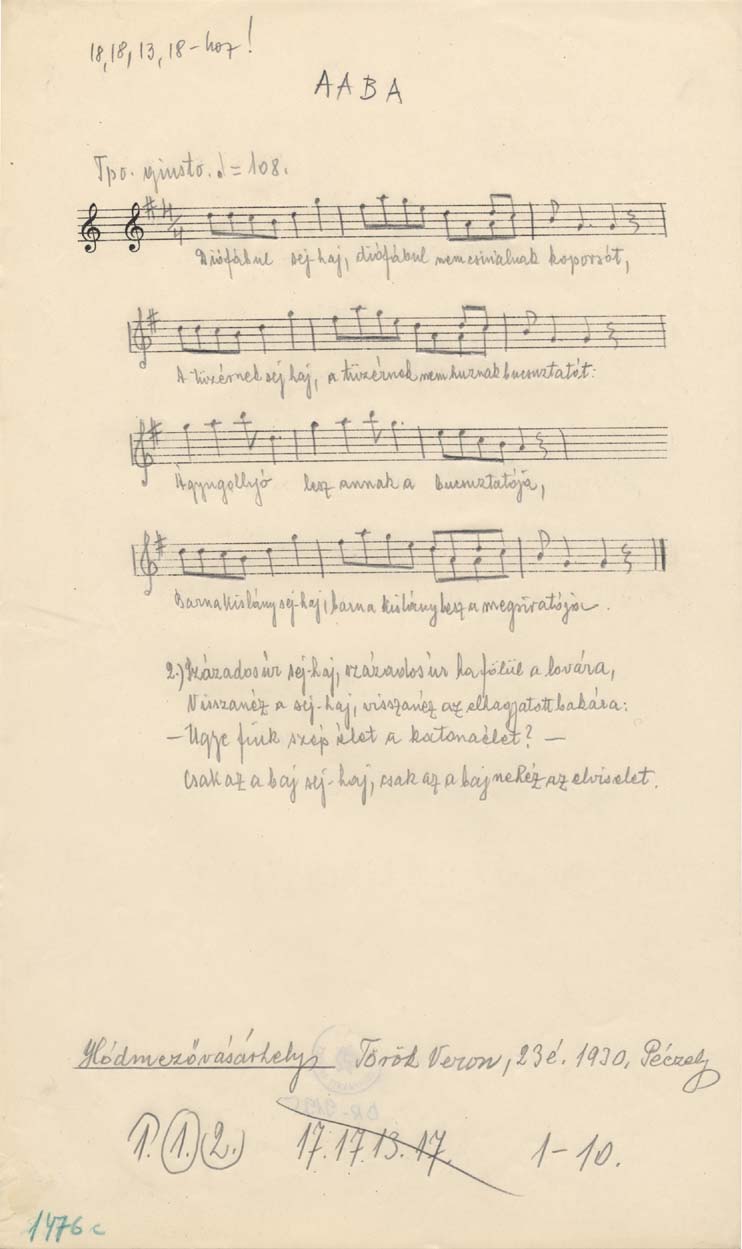 18, 18, 13, 18 - hoz!
AABA
Tpo. giusto. ♩ = 108.
4/4
Diófábul sej-haj, diófábul nem csinálnak koporsót,
A tüzérnek sej haj, a tüzérnek nem huznak bucsuztatót:
Ágyugollyó lesz annak a bucsuztatója,
Barna kislány sej-haj, barna kislány lesz a megsiratója.
2.) Százados úr sej-haj, százados úr ha fölül a lovára,
Visszanéz a sej-haj, visszanéz az elhagyatott bakára:
- Ugye fiuk szép élet a katonaélet? -
Csak az a baj sej-haj, csak az a baj nehéz az elviselet.
Hódmezővásárhely Török Veron, 23 é. 1930, Péczely
1. 1. 2. 17. 17. 13. 17. 1-10.
1476 c